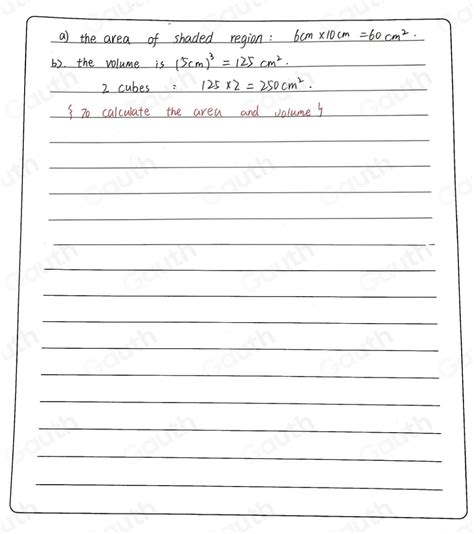 a) the area of shaded region : 6cm x 10 cm = 60 cm².
b). the volume is (5cm)³ = 125 cm².
2 cubes : 125 x 2 = 250 cm².
{ To calculate the area and volume }